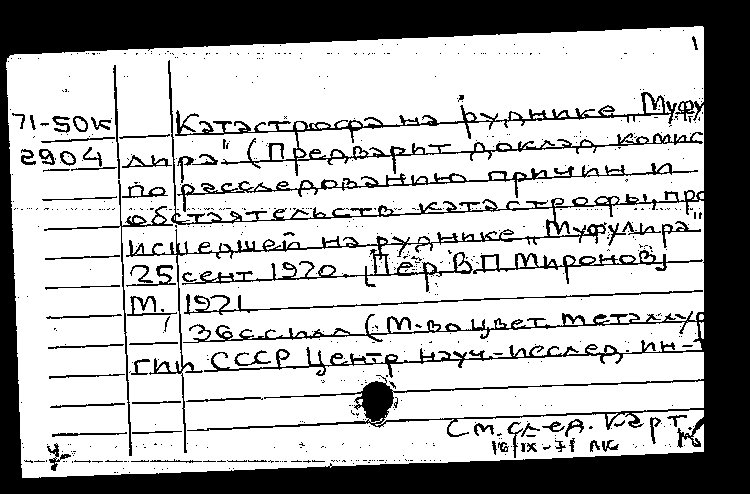 1
71-50к Катастрофа на руднике „Муфу
2904 лира" (Предварит доклад комис
по расследованию причин и
обстоятельств катастрофы, про
исшедшей на руднике „Муфулира"
25 сент 1970. [Пер. В.П. Миронов]
М. 1971
36 с. с илл (М-во цвет. металлур
гии СССР Центр. науч.-исслед. ин-т
См. след. карт.